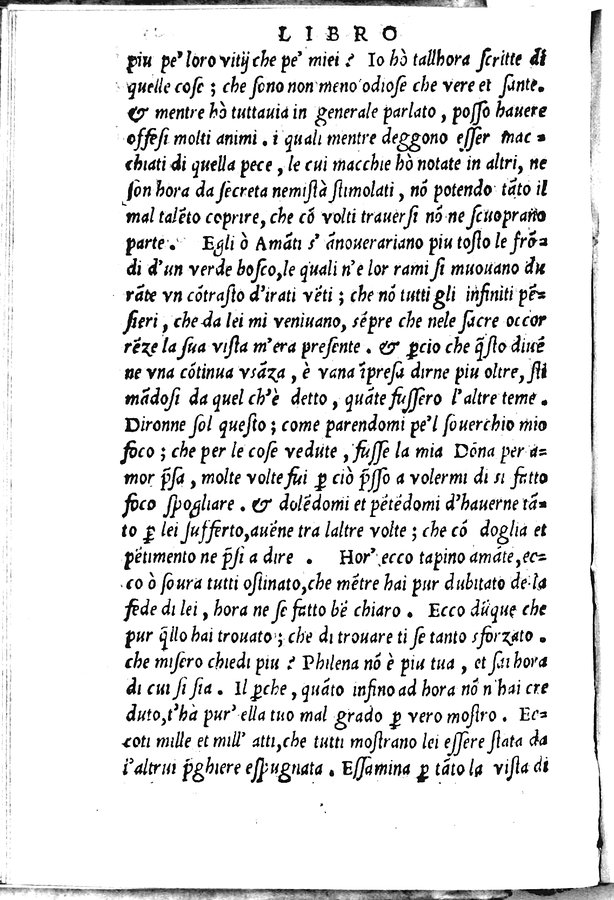 LIBRO
piu pe' loro vitij che pe' miei? Io hò tallhora scritte di
quelle cose; che sono non meno odiose che vere et sante.
& mentre hò tuttauia in generale parlato, posso hauere
offesi molti animi. i quali mentre deggono esser mac=
chiati di quella pece, le cui macchie hò notate in altri, ne
son hora da secreta nemistà stimolati, nõ potendo tãto il
mal talẽto coprire, che cõ volti trauersi nõ ne scuoprano
parte. Egli ò Amãti s' ãnouerariano piu tosto le frõ=
di d'un verde bosco, le quali n'e lor rami si muouano du
rãte vn cõtrasto d'irati vẽti; che nõ tutti gli infiniti pẽ=
sieri, che da lei mi veniuano, sẽpre che nele sacre occor
rẽze la sua vista m'era presente. & ꝑcio che q̃sto diuẽ
ne vna cõtinua vsãza, è vana ĩpresa dirne piu oltre, sti
mãdosi da quel ch'è detto, quãte fussero l'altre teme.
Dironne sol questo; come parendomi pe'l souerchio mio
foco; che per le cose vedute, fusse la mia Dõna per a=
mor p̃sa, molte volte fui ꝑ ciò p̃sso a volermi di si fatto
foco spogliare. & dolẽdomi et pẽtẽdomi d'hauerne tã=
to ꝑ lei sufferto, auẽne tra laltre volte; che cõ doglia et
pẽtimento ne p̃si a dire. Hor' ecco tapino amãte, ec=
co ò soura tutti ostinato, che mẽtre hai pur dubitato de la
fede di lei, hora ne se fatto bẽ chiaro. Ecco dũque che
pur q̃llo hai trouato; che di trouare ti se tanto sforzato.
che misero chiedi piu? Philena nõ è piu tua, et sai hora
di cui si sia. Il ꝑche, quãto infino ad hora nõ n'hai cre
duto, t'hà pur' ella tuo mal grado ꝑ vero mostro. Ec=
coti mille et mill' atti, che tutti mostrano lei essere stata da
l'altrui p̃ghiere espugnata. Essamina ꝑ tãto la vista di